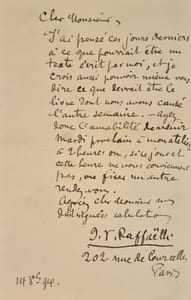 Cher Monsieur,
J'ai pensé ces jours derniers
à ce que pourrait être un
texte écrit par moi, et je
crois aussi pouvoir mieux vous
dire ce que devrait être le
livre dont nous avons causé
l'autre semaine. — ayez
donc l'amabilité de venir
Mardi prochain à mon atelier
à 2 heures ou, si ce jour et
cette heure ne vous conviennent
pas, me fixer un autre
rendez-vous.
Agréez cher Monsieur mes
distinguées salutations
J. F. Raffaëlli
202 rue de Courcelles
Paris